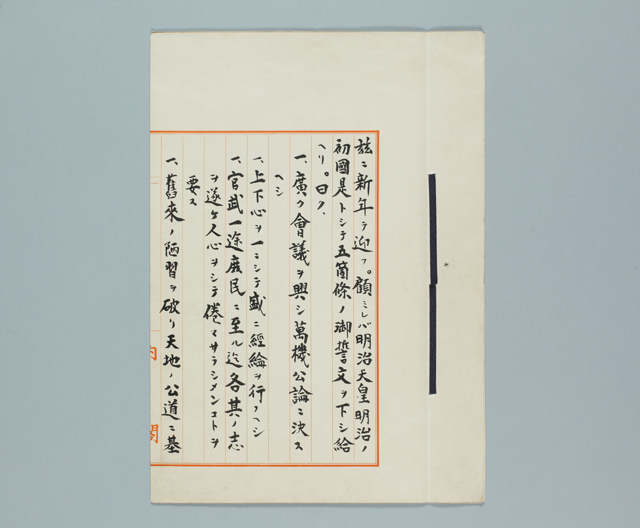 玆ニ新年ヲ迎フ。顧ミレバ明治天皇明治ノ
初國是トシテ五箇條ノ御誓文ヲ下シ給
ヘリ。曰ク、
一、廣ク會議ヲ興シ萬機公論ニ決ス
ヘシ
一、上下心ヲ一ニシテ盛ニ經綸ヲ行フヘシ
一、官武一途庶民ニ至ル迄各其ノ志
ヲ遂ケ人心ヲシテ倦マサラシメンコトヲ
要ス
一、舊來ノ陋習ヲ破リ天地ノ公道ニ基
内閣